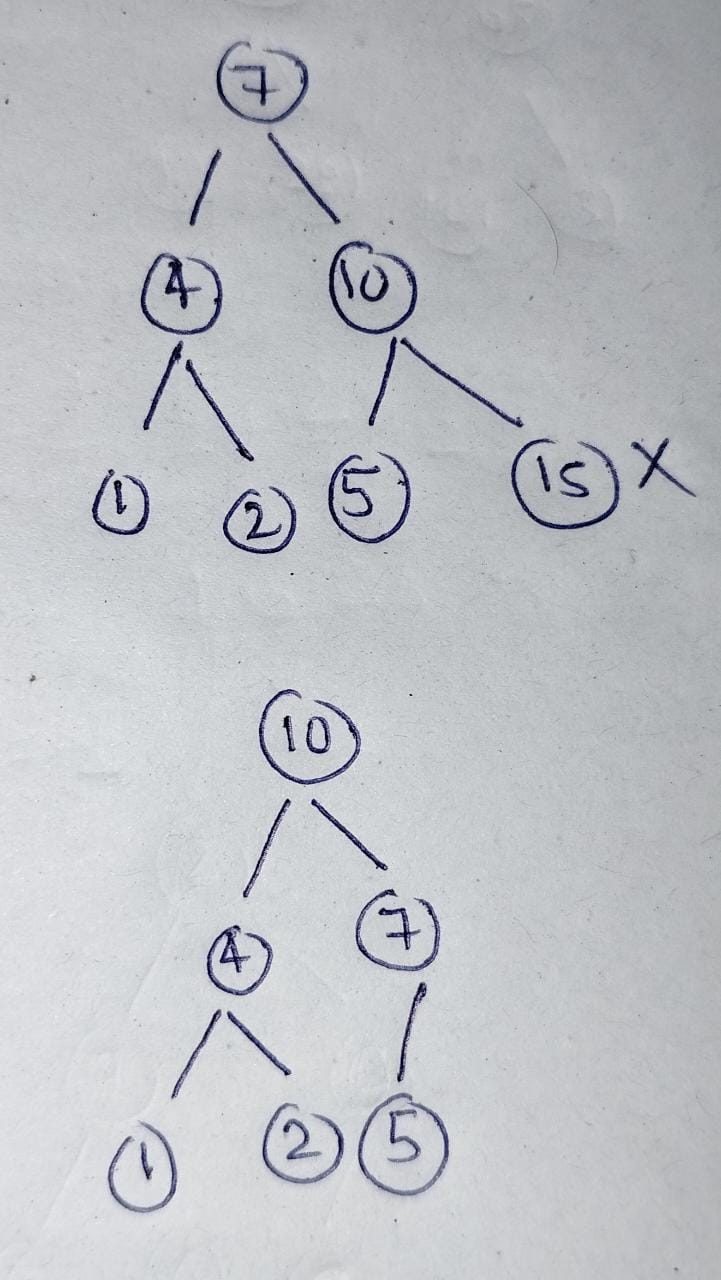 7
4 10
1 2 5 15 X
10
4 7
1 2 5